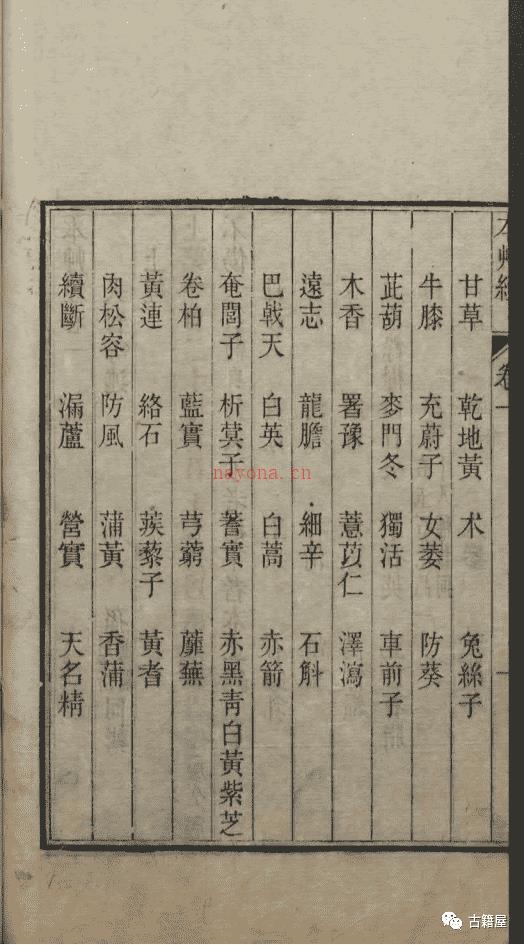 卷一
甘草 乾地黃 术 兔絲子
牛膝 充蔚子 女萎 防葵
茈葫 麥門冬 獨活 車前子
木香 署豫 薏苡仁 澤瀉
遠志 龍膽 細辛 石斛
巴戟天 白英 白蒿 赤箭
奄閭子 析蓂子 蓍實 赤黑青白黃紫芝
卷柏 藍實 芎藭 蘼蕪
黃連 絡石 蒺藜子 黃耆
肉松容 防風 蒲黃 香蒲
續斷 漏蘆 營實 天名精
nayona.cn
古籍屋